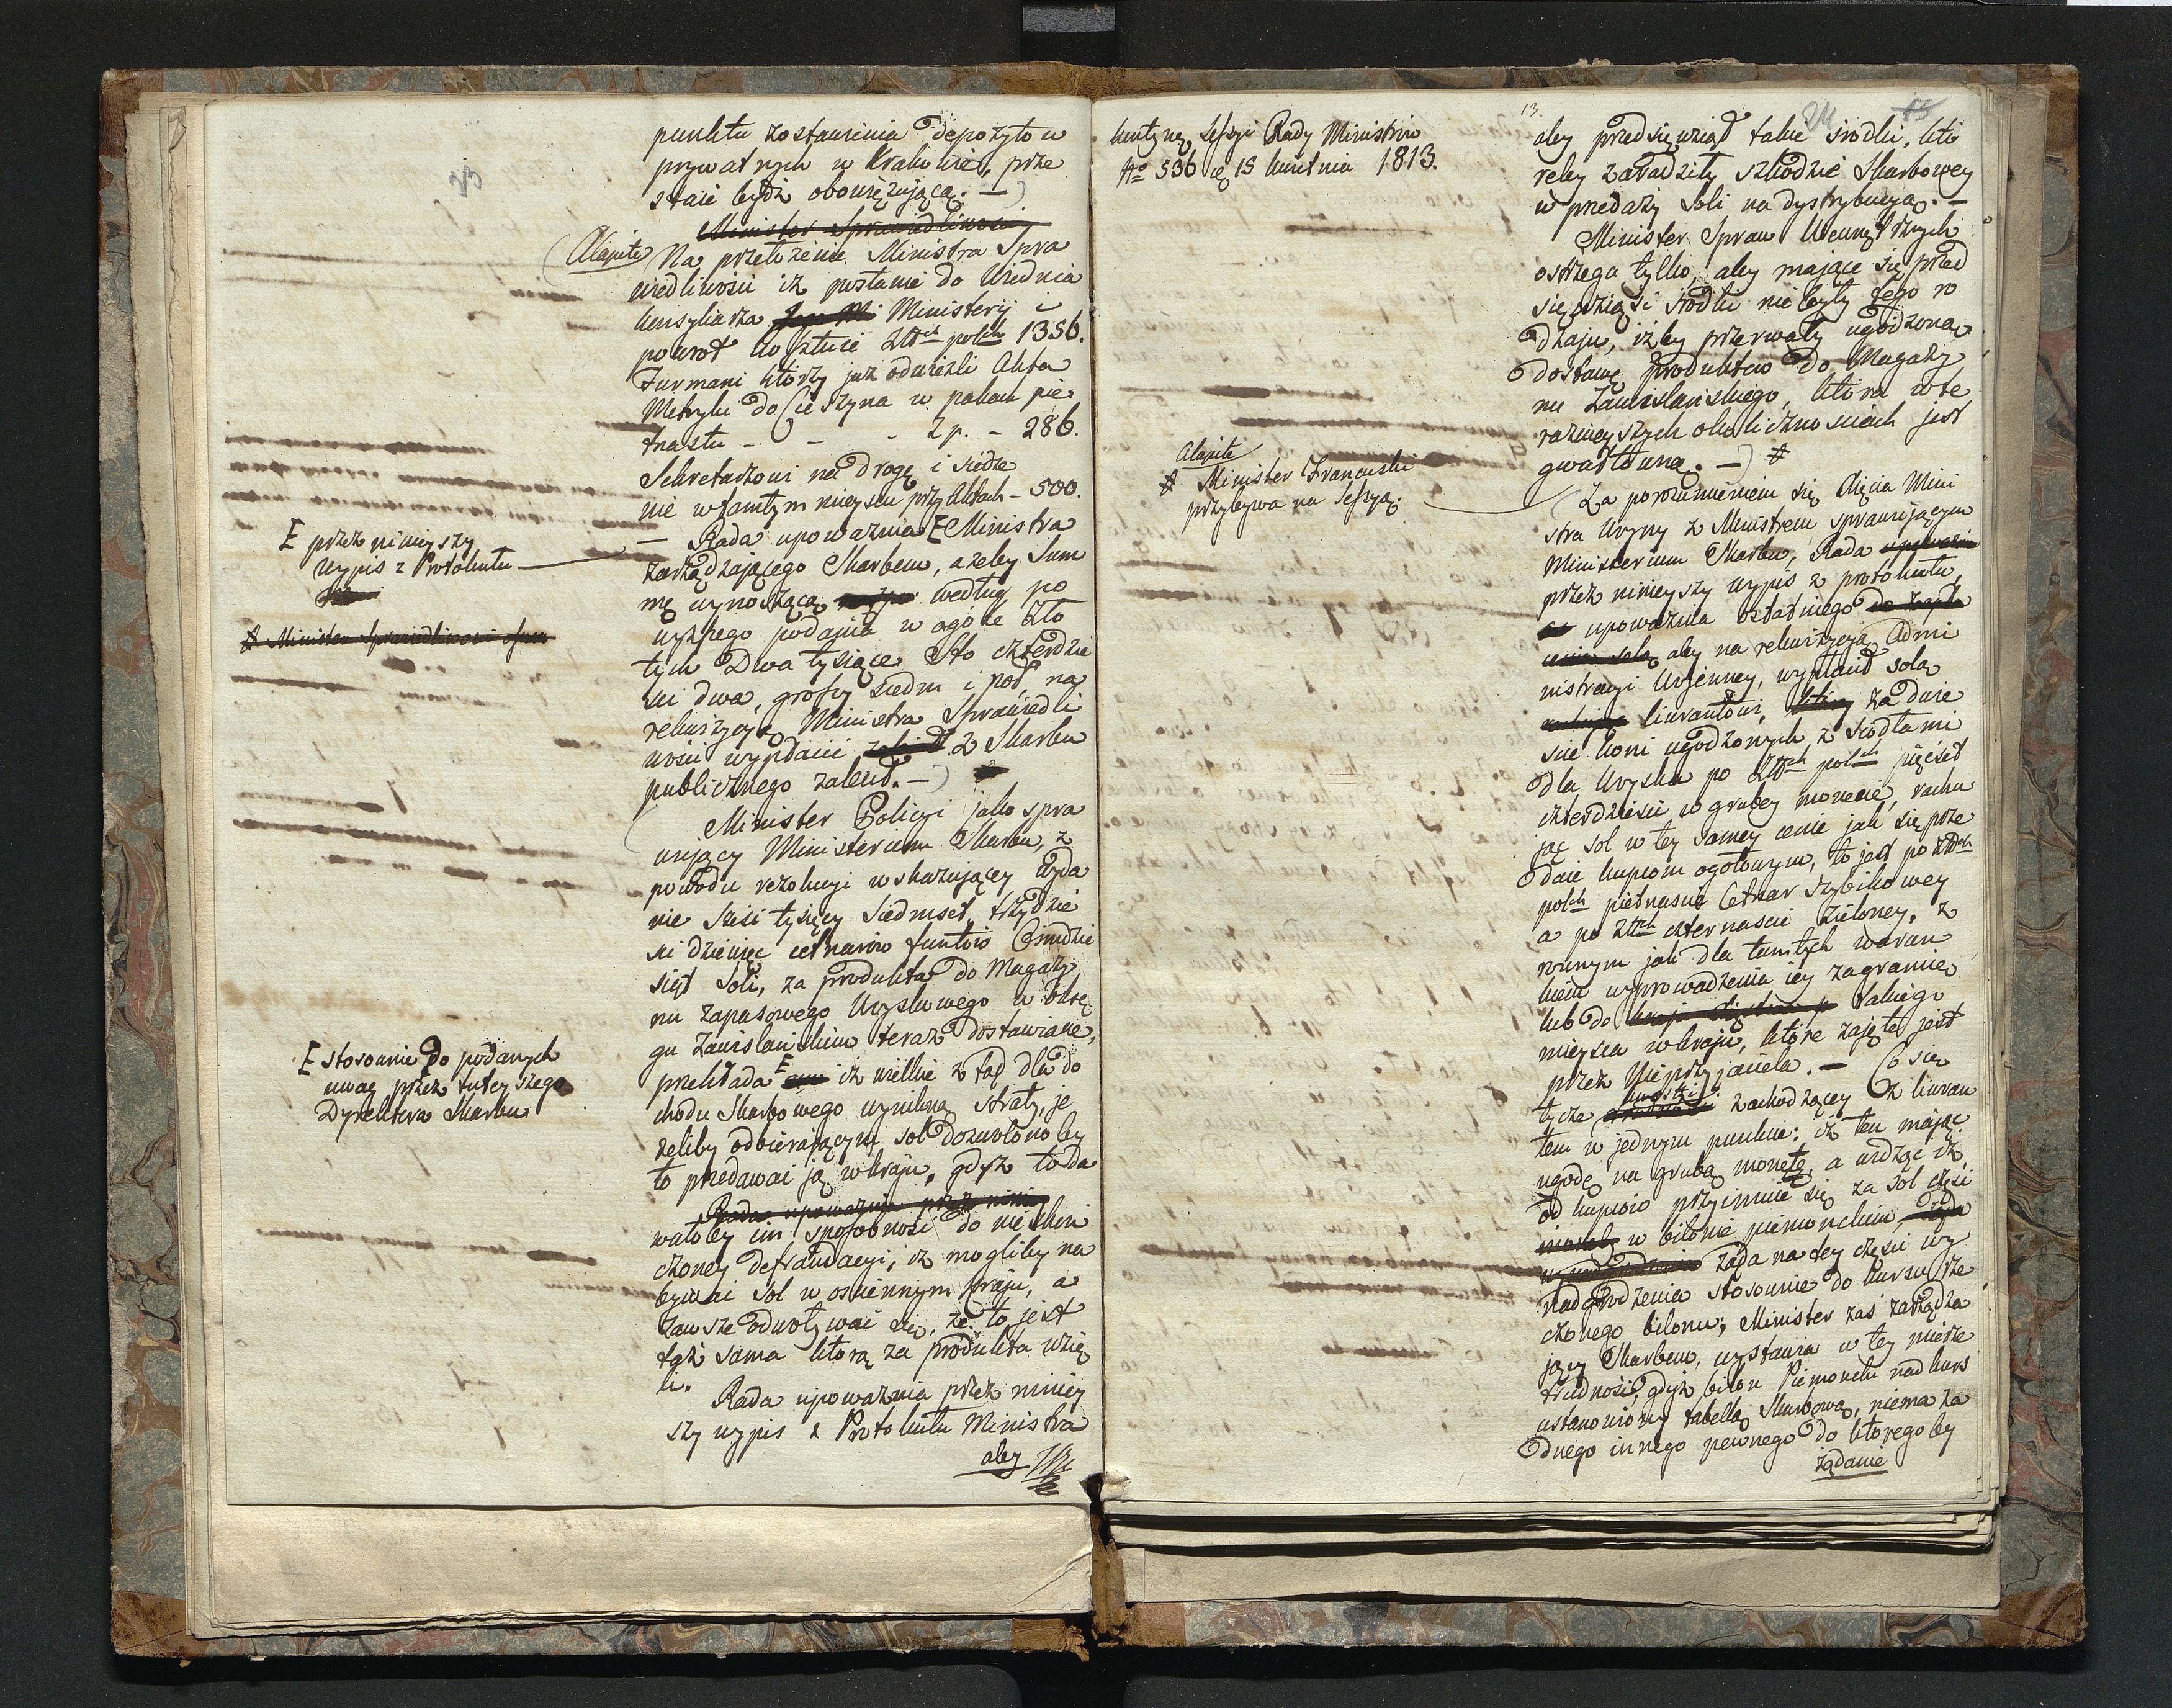 23
punktu zostawienia depozytow
prywatnych w Krakowie, prze
staie bydź obowięzuiącą. —
Minister Sprawiedliwosci
Alapite Na przełożenie Ministra Spra
wiedliwosci iż posłanie do Wiednia
Konsyliarza Ministeryi i
powrot kosztuie Złtch polch 1356.
Furmani ktorzy już odwieźli Akta
Metryki do Cieszyna w pakach pię
tnastu - - - Zp. - 286.
Sekretarzowi na drogę i siedze
nie w tamtym mieyscu przy Aktach - 500.
— Rada upoważnia E Ministra
zarządzaiącego Skarbem, ażeby Sum
mę wynoszącą według po
wyższego podania w ogóle Zło
tych Dwa tysiące Sto czterdzie
sci dwa, groszy siedm i poł na
rekwizycyą Ministra Sprawiedli
wosci wypłacić z Skarbu
publicznego zalecił. —
E przez ninieyszy
wypis z Protokułu
Minister Sprawiedliwosci
Minister Policyi jako spra
wuiący Ministerium Skarbu, z
powodu rezolucyi wskazuiącey wyda
nie sześć tysięcy siedmset trzydzie
sci dziewięć cetnarów funtów ośmdzie
siąt Soli, za produkta do Magazy
nu zapasowego Woyskowego w Okrę
gu Zawislańskim teraz dostawiane,
przekłada E iż wielkie z tąd dla do
chodu Skarbowego wynikną straty, je
żeliby odbieraiącym sol dozwolono by
to przedawać ją w kraju, gdyż to da
Rada upoważnia przez niniey
wałoby im sposobność do nieskoń
czoney defraudacyi, iż mogliby na
bywać sol w osciennym kraju, a
zawsze odwoływać się, że to jest
taż sama ktorą za produkta wzię
li.
E stosownie do podanych
uwag przez tuteyszego
Dyrektora Skarbu
Rada upoważnia przez niniey
szy wypis z Protokułu Ministra
aby
13.
24
13
kontynuą Sessyi Rady Ministrów
No 536 15 kwietnia 1813.
aby przedsięwziął takie środki, któ
reby zaradziły szkodzie Skarbowey
w przedaży Soli na dystrybucyą. —
Minister Spraw Wewnętrznych
ostrzega tylko, aby maiące się przed
sięwziąść środki nie były tego ro
dzaju, iżby przerwały ugodzoną
dostawę produktów do Magazy
nu Zawislańskiego, która w te
raźnieyszych okolicznosciach jest
gwałtowną. —
Alapite
Minister Francuski
przybywa na Sessyą.
Za porozumieniem się Xięcia Mini
stra Woyny z Ministrem sprawuiącym
Ministerium Skarbu, Rada
przez ninieyszy wypis z protokułu,
upoważnia ostatniego
aby na rekwizycyą Admi
nistracyi Woienney, wypłacił solą
liwerantowi, za dwie
scie koni ugodzonych, z siodłami
dla Woyska po Złtch polch pięćset
czterdziesci w grubey monecie, rachu
jąc sol w tey samey cenie jak się prze
daie kupcom ogołowym, to jest po Złtch
polch piętnascie Cetnar szybikowey
a po Złtch czternascie zieloney, z
rownym jak dla tamtych warun
kiem wyprowadzenia iey zagranicę
lub do takiego
mieysca w kraju, które zajęte jest
przez Nieprzyjaciela. — Co się
tycze kwestyi zachodzącey z liweran
tem w jednym punkcie: iż ten mając
ugodę na grubą monetę, a widząc iż
od kupców przyimuie się za sol część
w bilonie piemonckim,
żąda na tey częsci wy
nadgrodzenia stosownie do kursu rze
czonego bilonu; Minister zaś zarządza
jący Skarbem, wystawia w tey mierze
trudnosci, gdyż bilon Piemoncki nad kurs
ustanowiony tabellą Skarbową, niema ża
dnego innego pewnego do ktoregoby
żądanie